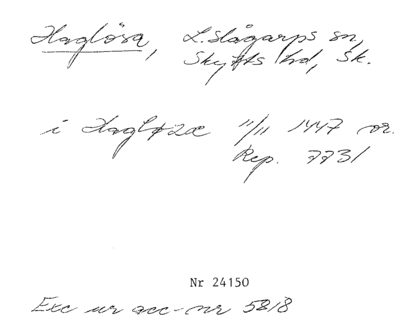 Haglösa, L. Slågarps sn,
Skytts hd, Sk.
i Hagløzæ 11/11 1447 or.
Rep. 7731
Nr 24150
Exc ur acc-nr 5818